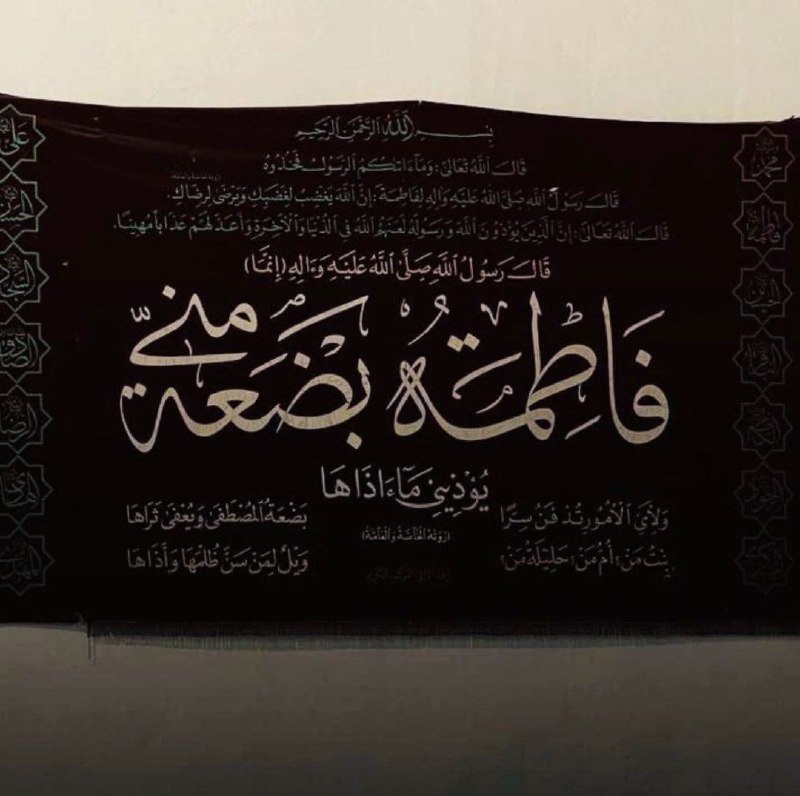 بسم الله الرحمن الرحيم
قال الله تعالى: وما ءاتاكم الرسول فخذوه
قال رسول الله صلى الله عليه واله لفاطمة: إن الله يغضب لغضبك ويرضى لرضاك.
قال الله تعالى: إن الذين يؤذون الله ورسوله لعنهم الله في الدنيا والآخرة وأعد لهم عذابا مهينا.
قَالَ رَسُولُ اللَّهِ صَلَّى اللَّهُ عَلَيْهِ وَءَالِهِ (إِنَّمَا)
فَاطِمَةُ بَضْعَةٌ مِنِّي
يُؤْذِينِي مَاءَاذَاهَا
وَلِأَيِّ الْأُمُورِ تُدْفَنُ سِرًّا بَضْعَةُ الْمُصْطَفَى وَيُعْفَى ثَرَاهَا
(روته الخاصة والعامة)
بِنْتُ مَنْ؛ أُمُّ مَنْ؛ حَلِيلَةُ مَنْ؛ وَيْلٌ لِمَنْ سَنَّ ظُلْمَهَا وَأَذَاهَا
محمد
فاطمة
الحسين
الباقر
الكاظم
الجواد
علي
الحسن
السجاد
الصادق
الرضا
الهادي
المهدي